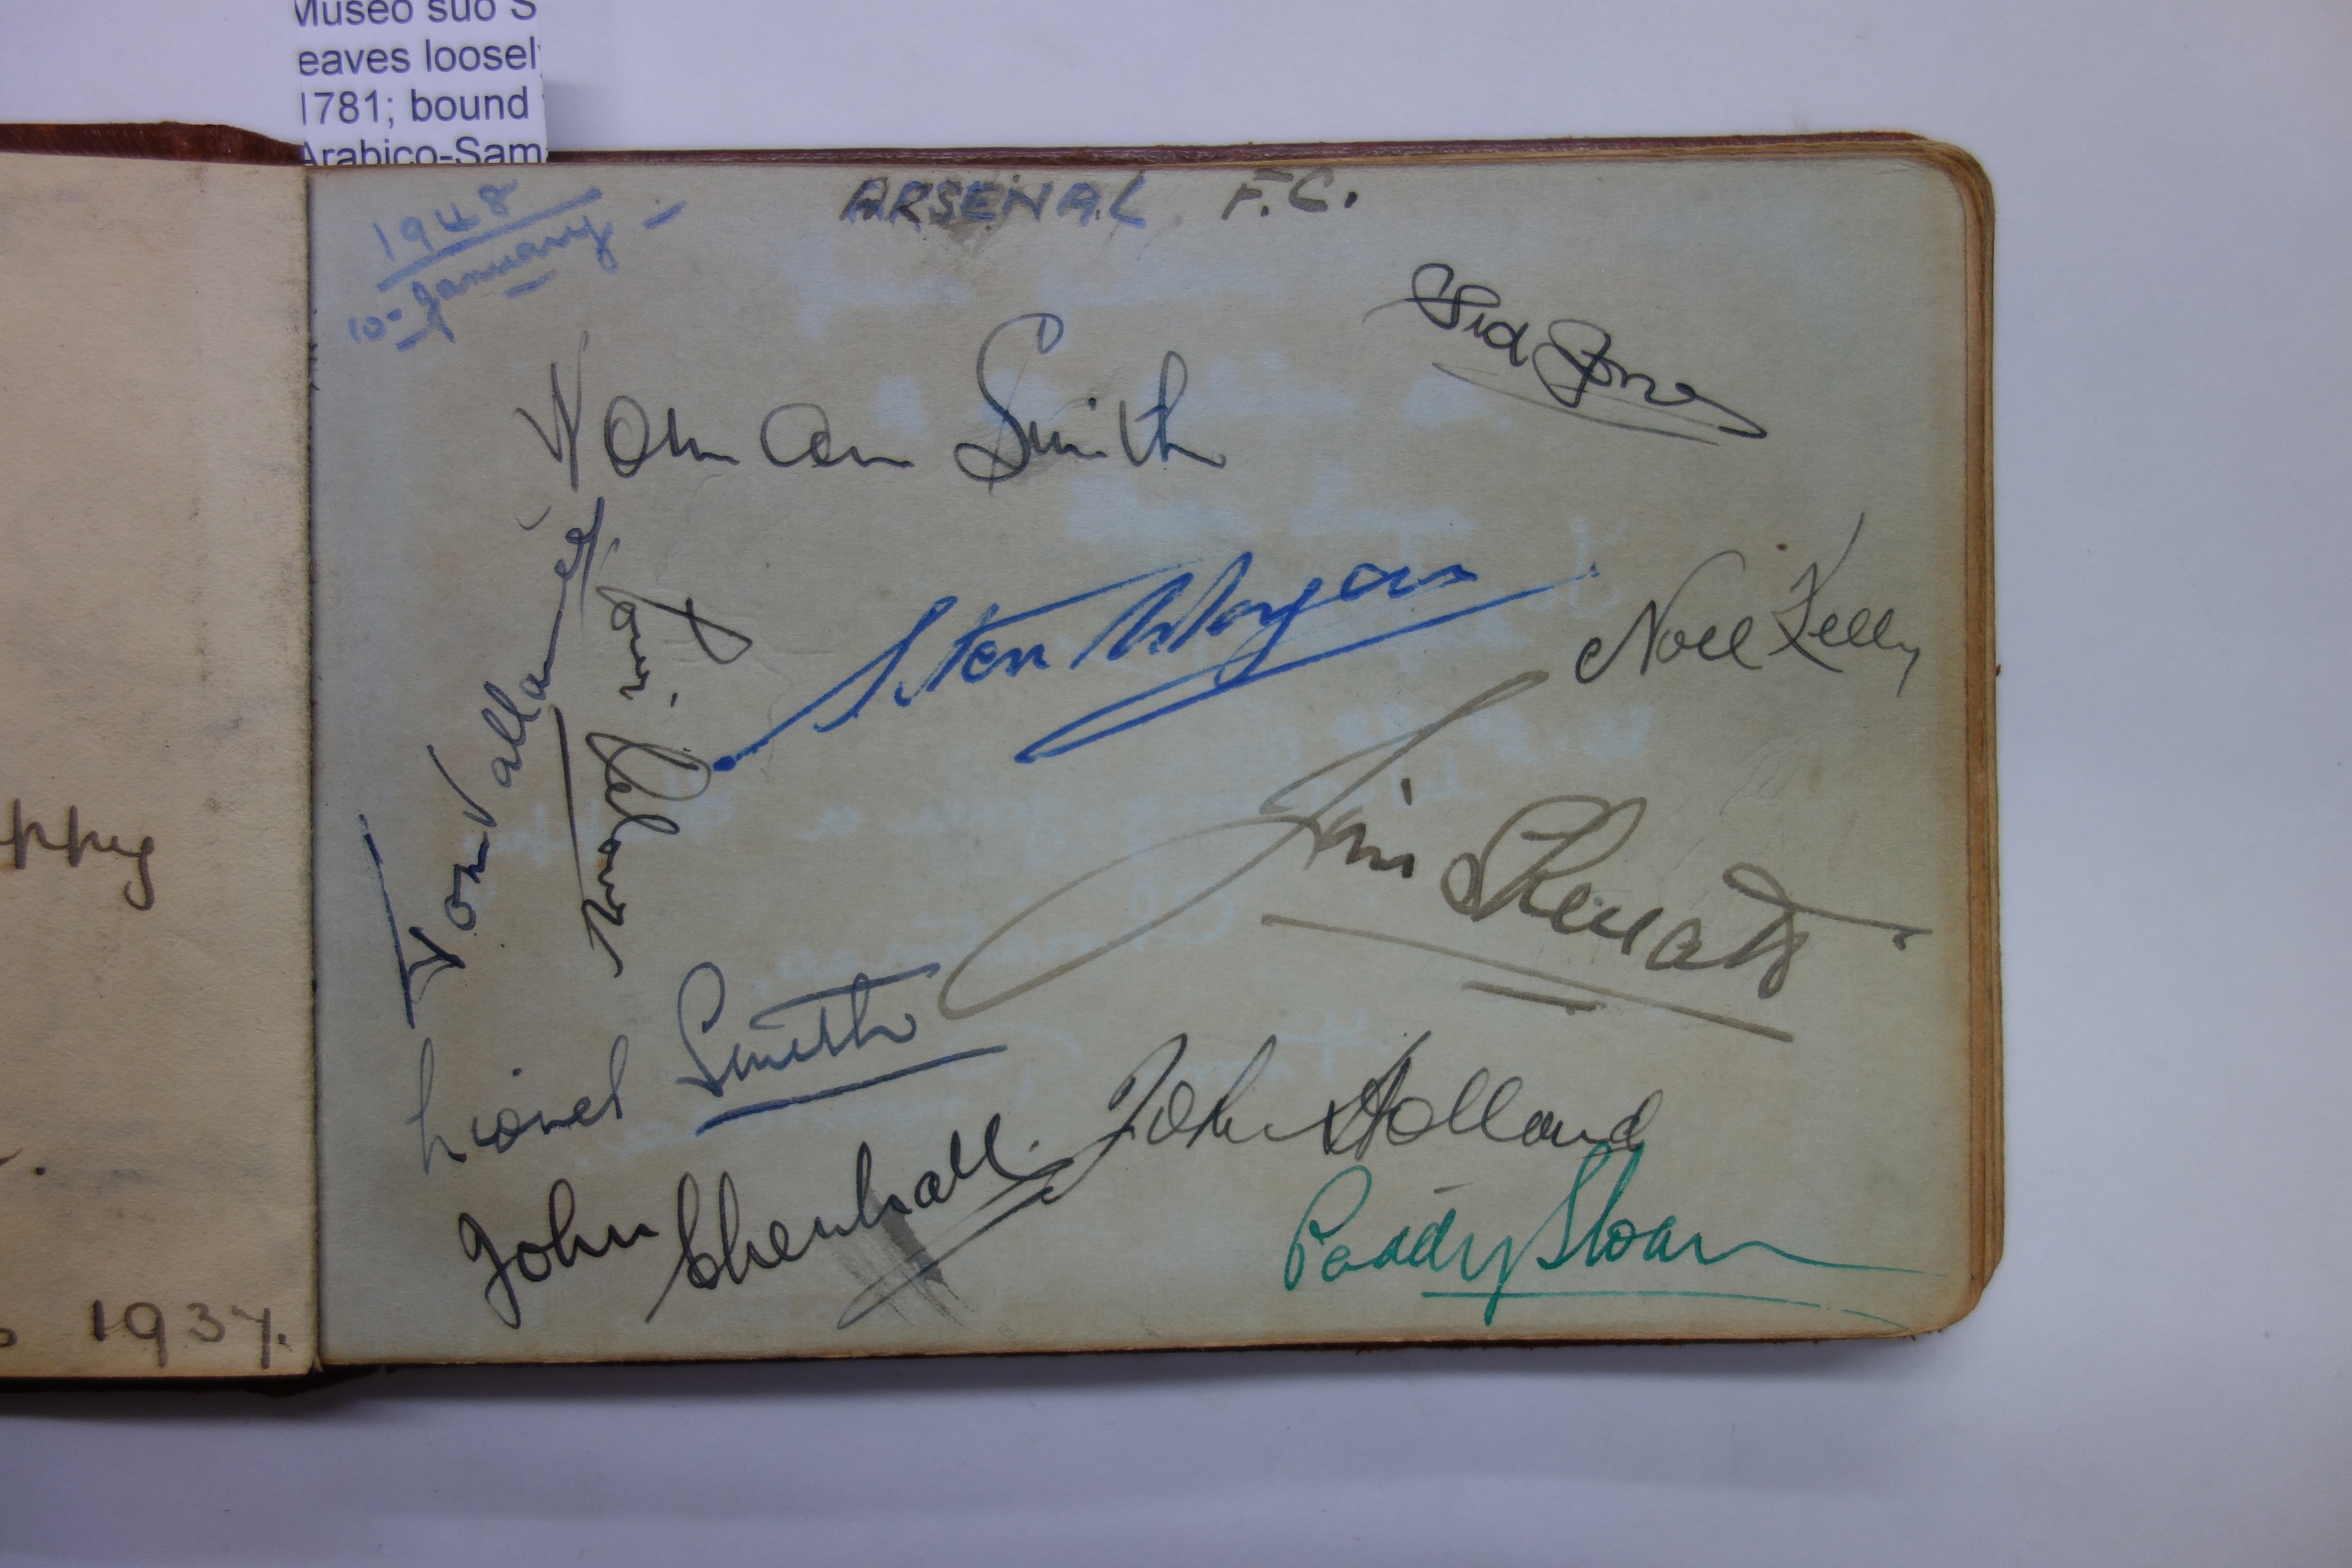 Museo suo S
eaves loosel
1781; bound
Arabico-Sam
ppy
1937.
1948
10- January -
ARSENAL F.C.
Sid Jones
Norman Smith
Tom Vallance
Stan Morgan
Noel Kelly
Jim Shenatt
Lionel Smith
John Chenhall.
John Holland
Paddy Sloan